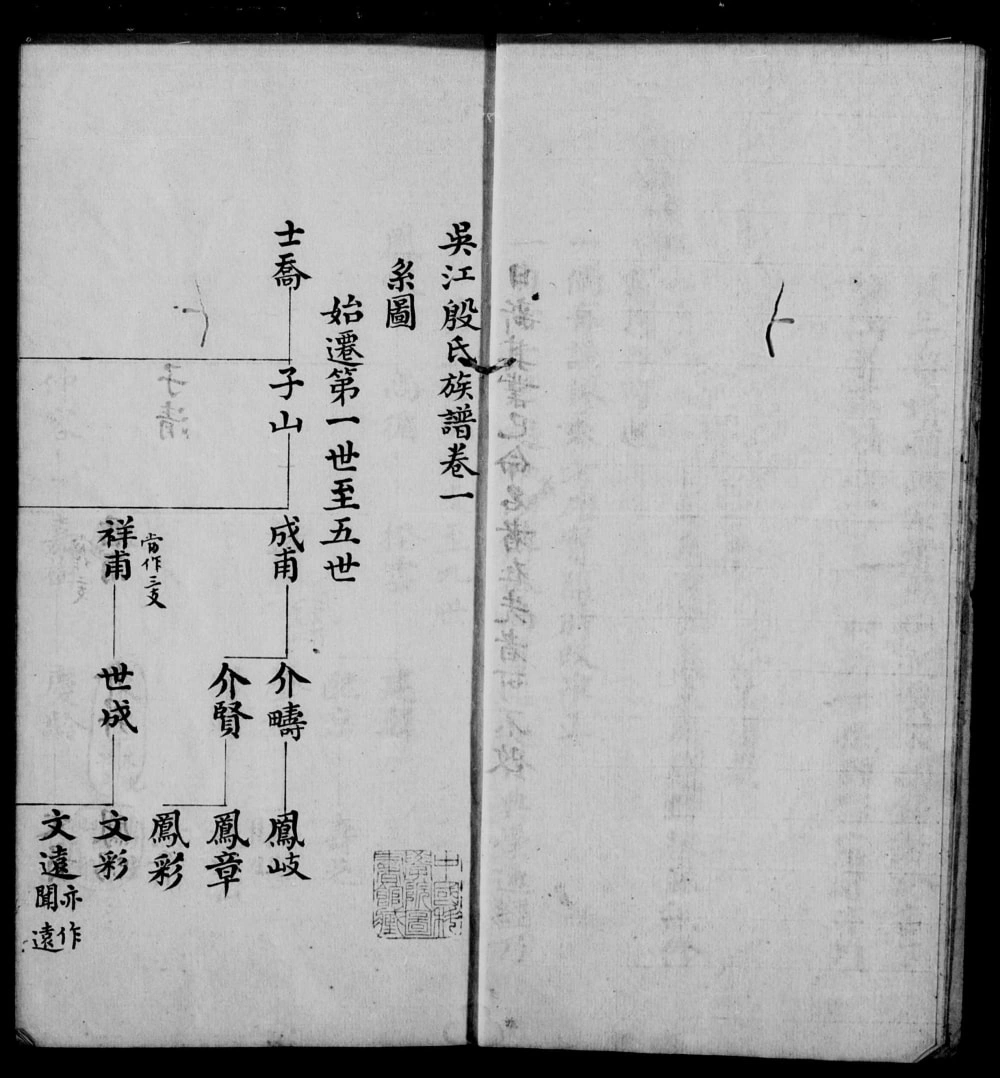 吳江殷氏族譜卷一
系圖
始遷第一世至五世
士喬
子山
成甫
介疇
鳳岐
介賢
鳳章
鳳彩
當作三支
祥甫
世成
文彩
文遠
亦作
聞遠
中國科
學院圖
書館藏